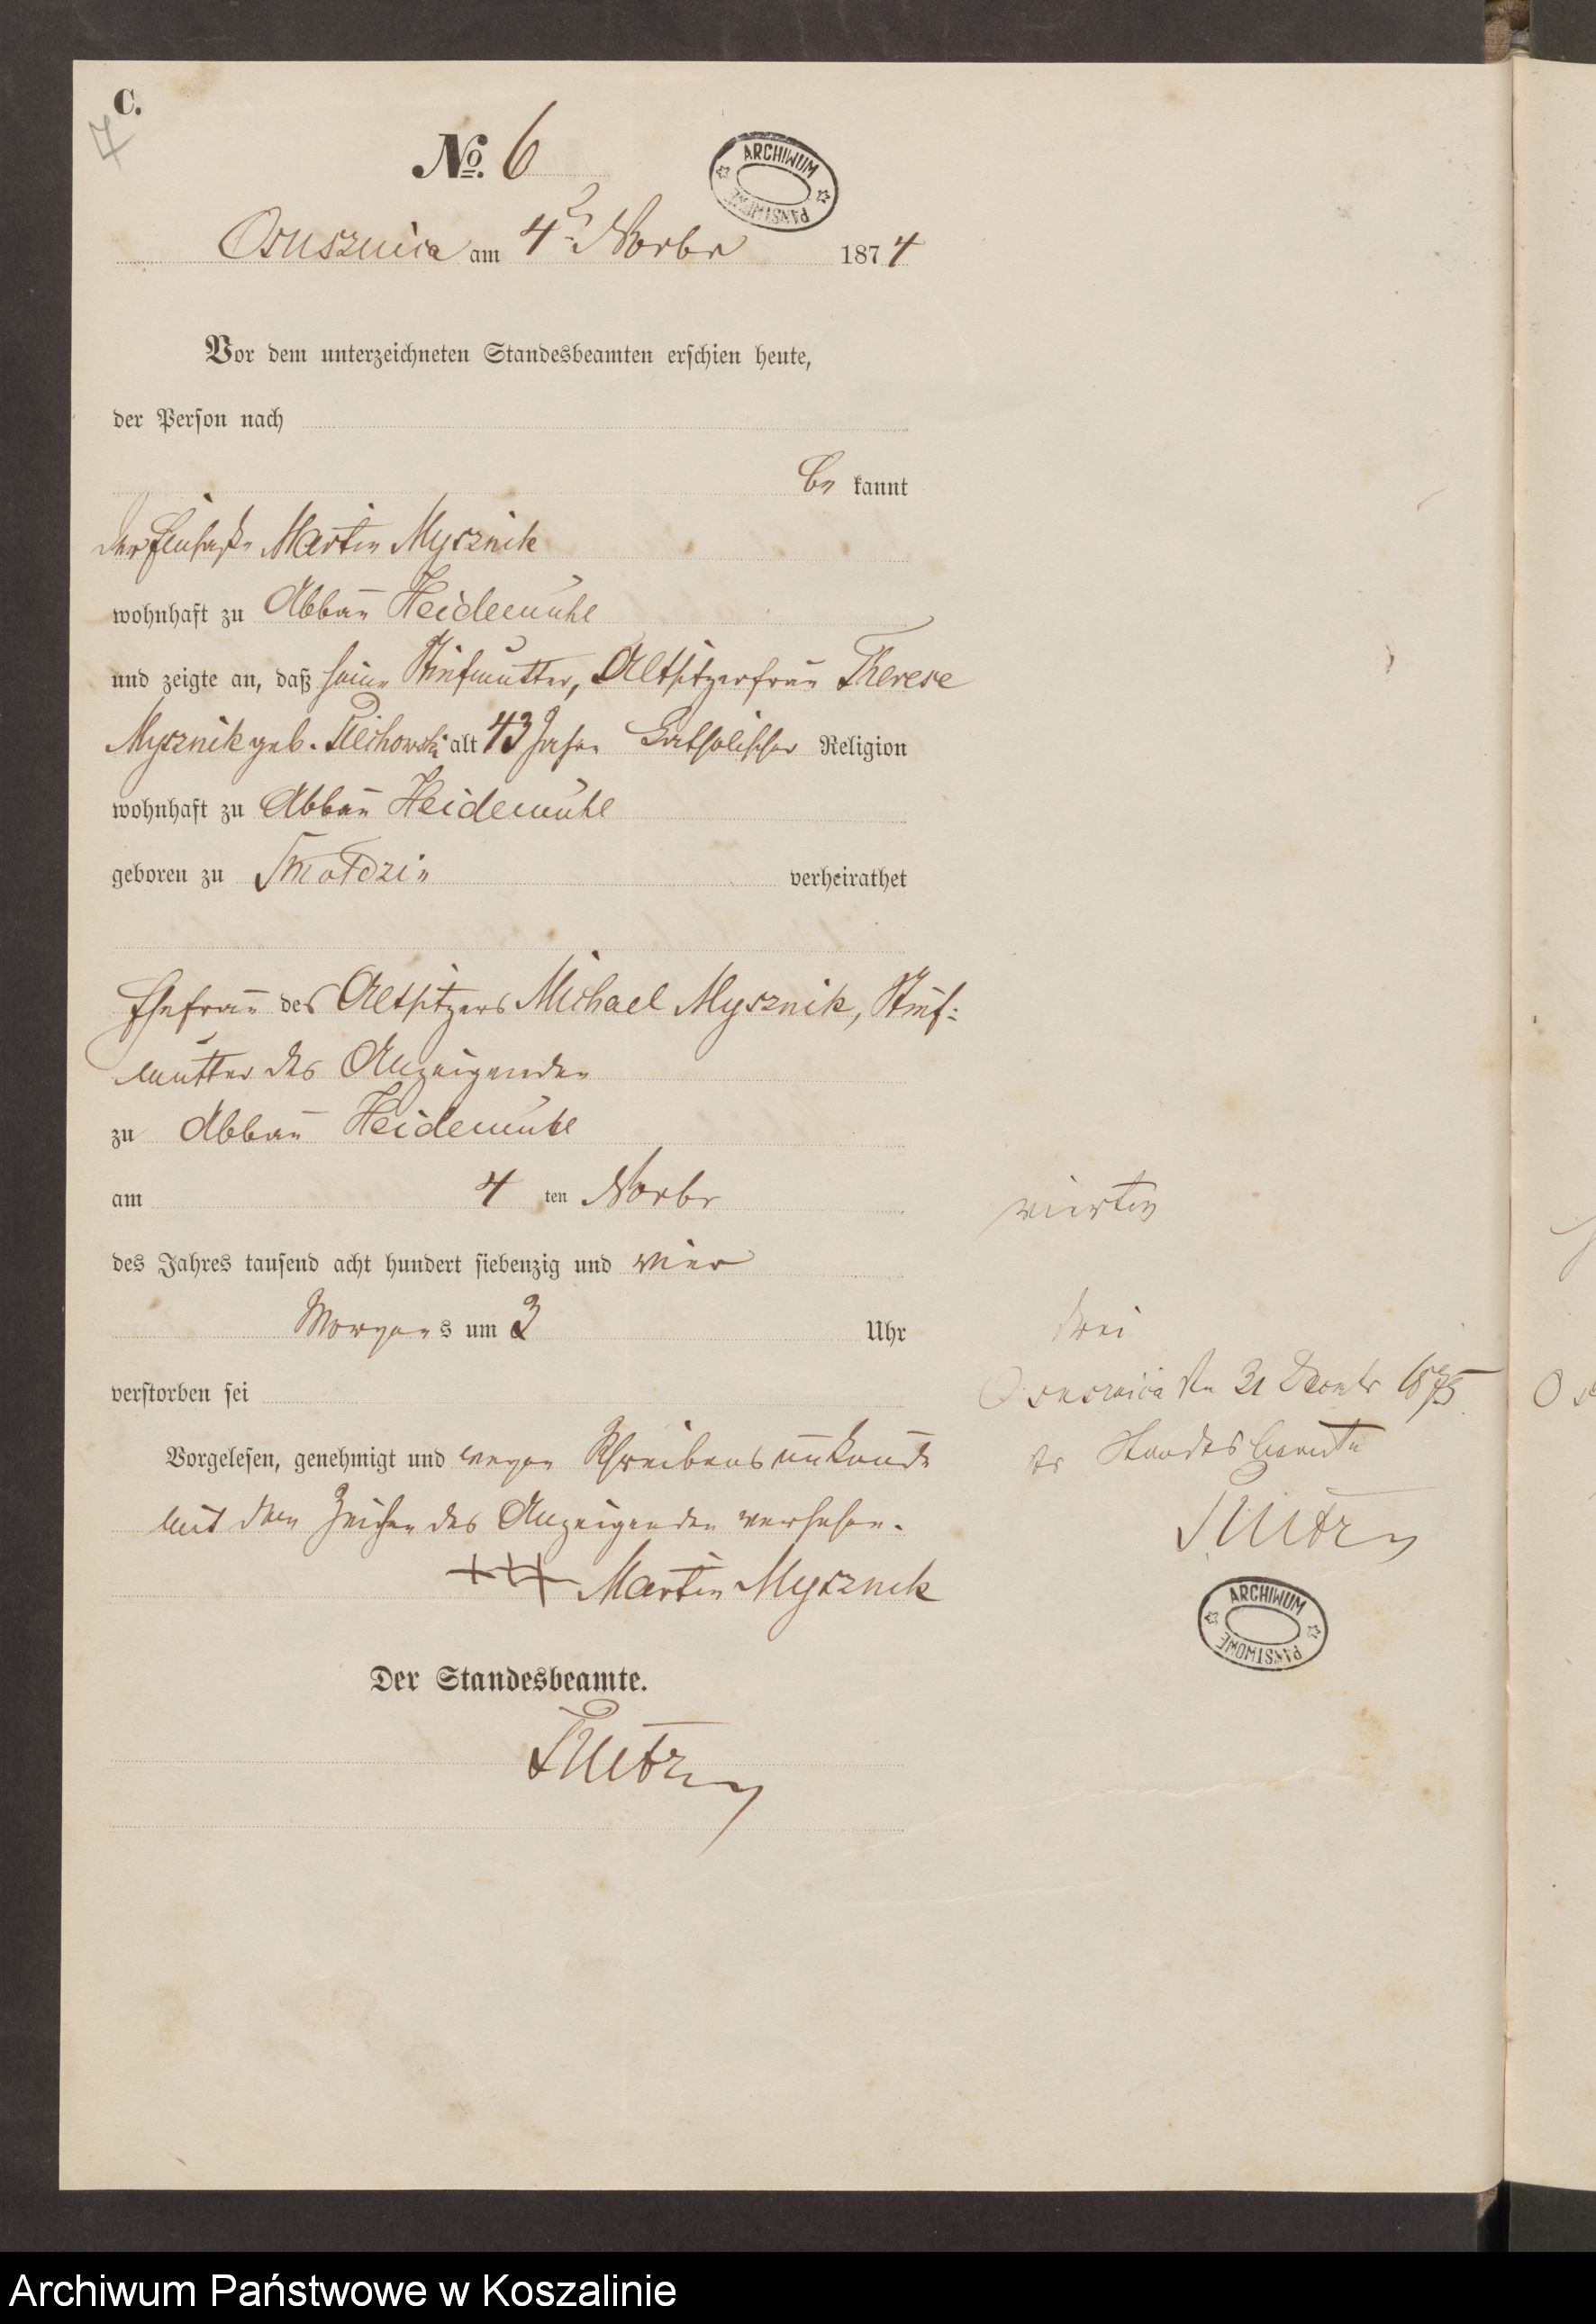 C.
7
No. 6
ARCHIWUM PAŃSTWOWE
Osusznica am 4t Novbr 1874
Vor dem unterzeichneten Standesbeamten erschien heute,
der Person nach
be kannt
der Martin Mysznik
wohnhaft zu Abbau Heidemühl
und zeigte an, daß seine Stiefmutter, Altsitzerfrau Therese
Mysznik geb. Piechowski alt 43 Jahre katholischer Religion
wohnhaft zu Abbau Heidemühl
geboren zu verheirathet
Ehefrau des Altsitzers Michael Mysznik, Stief-
mutter des Anzeigenden
zu Abbau Heidemühl
am 4 ten Novbr
vierten
des Jahres tausend acht hundert siebenzig und vier
Morgens um 3 Uhr
drei
verstorben sei
Osusznica den 31 Decembr 1875
Vorgelesen, genehmigt und wegen Schreibensunkunde
der Standesbeamte
mit dem Zeichen des Anzeigenden versehen.
+++ Martin Mysznik
ARCHIWUM PAŃSTWOWE
Der Standesbeamte.
Archiwum Państwowe w Koszalinie